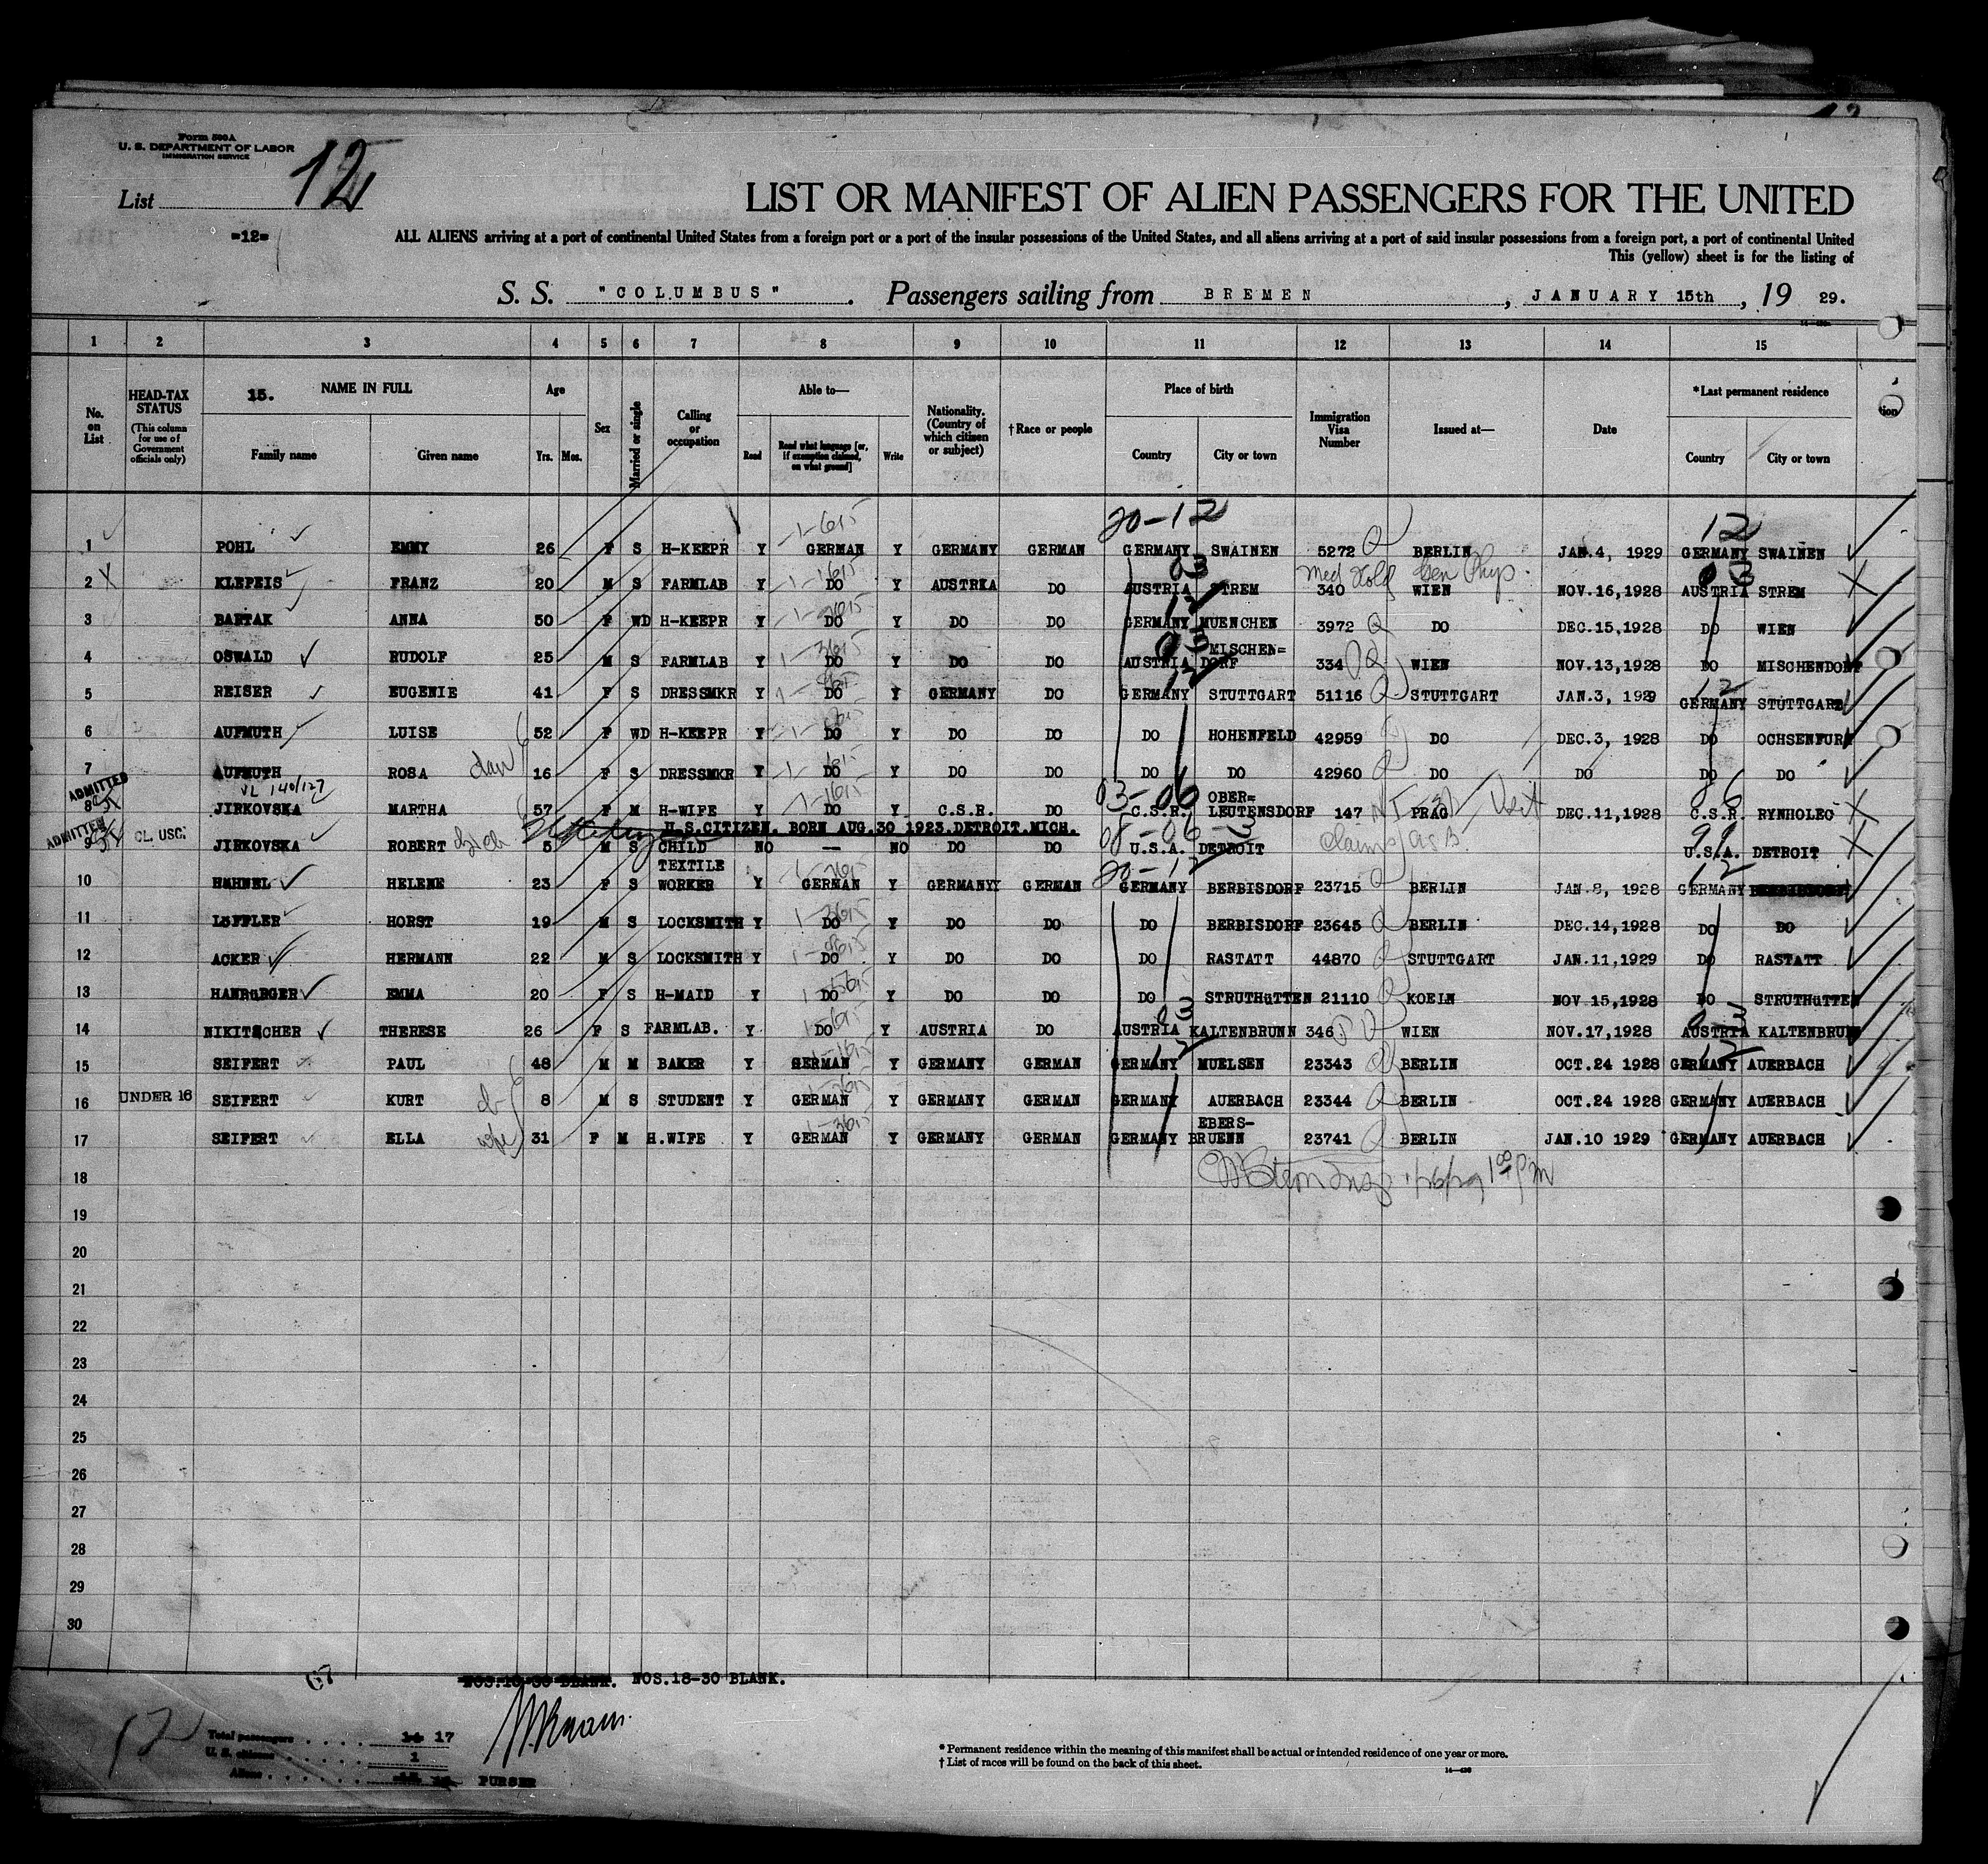 Form 500A
U. S. DEPARTMENT OF LABOR
IMMIGRATION SERVICE
List 12
=12=
LIST OR MANIFEST OF ALIEN PASSENGERS FOR THE UNITED
ALL ALIENS arriving at a port of continental United States from a foreign port or a port of the insular possessions of the United States, and all aliens arriving at a port of said insular possessions from a foreign port, a port of continental United
This (yellow) sheet is for the listing of
S. S. "COLUMBUS". Passengers sailing from BREMEN, JANUARY 15th, 19 29.
1 2 3 4 5 6 7 8 9 10 11 12 13 14 15
No. on List HEAD-TAX STATUS (This column for use of Government officials only) 15. NAME IN FULL Family name Given name Age Yrs. Mos. Sex Married or single Calling or occupation Able to— Read Read what language [or, if exemption claimed, on what ground] Write Nationality. (Country of which citizen or subject) †Race or people Place of birth Country City or town Immigration Visa Number Issued at— Date *Last permanent residence Country City or town
20-12 12
1 POHL EMMY 26 F S H-KEEPR Y GERMAN Y GERMANY GERMAN GERMANY SWAINEN 5272 BERLIN JAN.4, 1929 GERMANY SWAINEN
03 Med Hold Gen Phys. 03
2 X KLEPEIS FRANZ 20 M S FARMLAB Y DO Y AUSTRKA DO AUSTRIA STREM 340 WIEN NOV.16,1928 AUSTRIA STREM X
3 BARTAK ANNA 50 F WD H-KEEPR Y DO Y DO DO GERMANY MUENCHEN 3972 DO DEC.15,1928 DO WIEN
4 OSWALD RUDOLF 25 M S FARMLAB Y DO Y DO DO AUSTRIA MISCHEN=DORF 334 WIEN NOV.13,1928 DO MISCHENDORF
5 REISER EUGENIE 41 F S DRESSMKR Y DO Y GERMANY DO GERMANY STUTTGART 51116 STUTTGART JAN.3, 1929 GERMANY STUTTGART
6 AUFMUTH LUISE 52 F WD H-KEEPR Y DO Y DO DO DO HOHENFELD 42959 DO DEC.3, 1928 DO OCHSENFURT
7 AUFMUTH ROSA dau 16 F S DRESSMKR Y DO Y DO DO DO DO 42960 DO DO DO DO
ADMITTED VL 140/127 03-06
8 JIRKOVSKA MARTHA 57 F M H-WIFE Y DO Y C.S.R. DO C.S.R. OBER=LEUTENSDORF 147 PRAG Visit DEC.11,1928 C.S.R. RYNHOLEC X
U.S.CITIZEN. BORN AUG.30 1923.DETROIT.MICH.
ADMITTED
9 CL. USC. JIRKOVSKA ROBERT 5 M S CHILD NO — NO DO DO U.S.A. DETROIT claims as B. U.S.A. DETROIT X
20-12 12
10 HÄHNEL HELENE 23 F S TEXTILE WORKER Y GERMAN Y GERMANY GERMAN GERMANY BERBISDORF 23715 BERLIN JAN.8, 1928 GERMANY
11 LöFFLER HORST 19 M S LOCKSMITH Y DO Y DO DO DO BERBISDORF 23645 BERLIN DEC.14,1928 DO DO
12 ACKER HERMANN 22 M S LOCKSMITH Y DO Y DO DO DO RASTATT 44870 STUTTGART JAN.11,1929 DO RASTATT
13 HAMBURGER EMMA 20 F S H-MAID Y DO Y DO DO DO STRUTHüTTEN 21110 KOELN NOV 15,1928 DO STRUTHüTTEN
14 NIKITSCHER THERESE 26 F S FARMLAB. Y DO Y AUSTRIA DO AUSTRIA KALTENBRUNN 346 WIEN NOV.17,1928 AUSTRIA KALTENBRUNN
15 SEIFERT PAUL 48 M M BAKER Y GERMAN Y GERMANY GERMAN GERMANY MUELSEN 23343 BERLIN OCT.24 1928 GERMANY AUERBACH
16 UNDER 16 SEIFERT KURT ch 8 M S STUDENT Y GERMAN Y GERMANY GERMAN GERMANY AUERBACH 23344 BERLIN OCT.24 1928 GERMANY AUERBACH
17 SEIFERT ELLA wife 31 F M H.WIFE Y GERMAN Y GERMANY GERMAN GERMANY EBERS-BRUENN 23741 BERLIN JAN.10 1929 GERMANY AUERBACH
18 1/26/29 1 00 pm
19
20
21
22
23
24
25
26
27
28
29
30
NOS.18-30 BLANK. NOS.18-30 BLANK.
12
Total passengers 14 17
U. S. citizens 1
Aliens
PURSER
* Permanent residence within the meaning of this manifest shall be actual or intended residence of one year or more.
† List of races will be found on the back of this sheet.